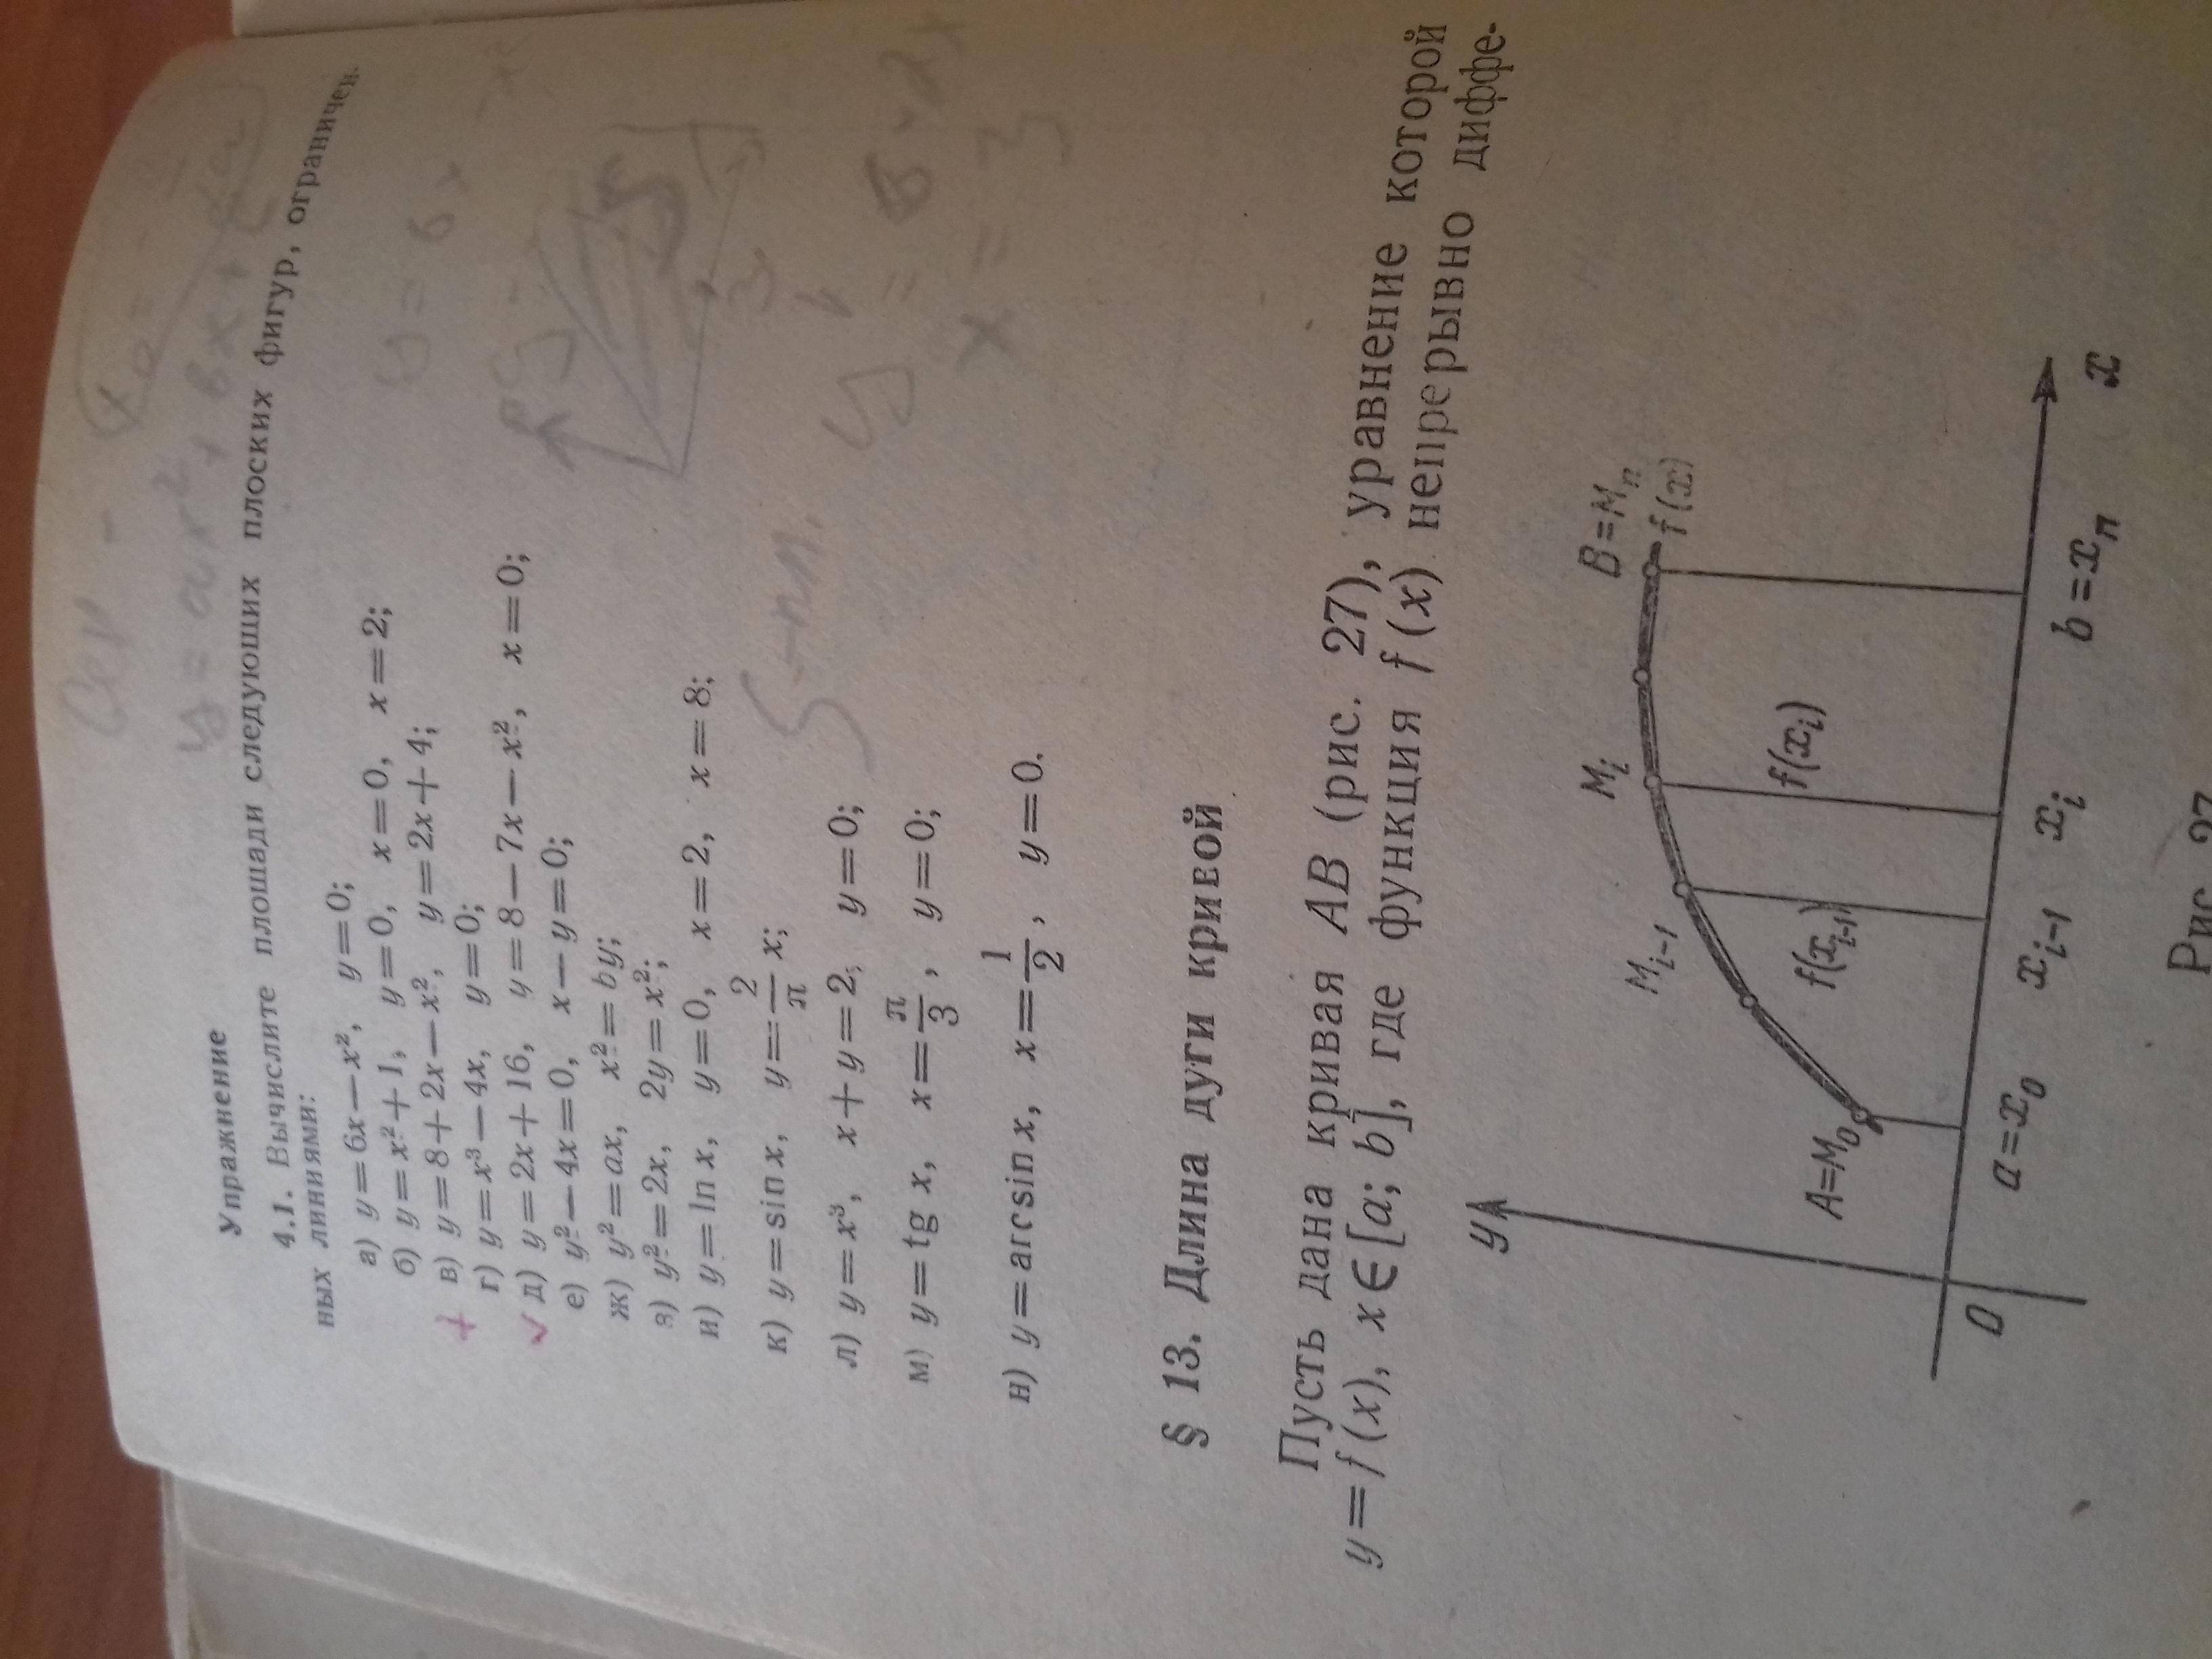 Упражнение
4.1. Вычислите площади следующих плоских фигур, ограничен-
ных линиями:
а) y=6x—x², y=0;
б) y=x²+1, y=0, x=0, x=2;
в) y=8+2x—x², y=2x+4;
г) y=x³—4x, y=0;
д) y=2x+16, y=8—7x—x², x=0;
е) y²—4x=0, x—y=0;
ж) y²=ax, x²=by;
з) y²=2x, 2y=x²;
и) y=ln x, y=0, x=2, x=8;
к) y=sin x, y=2/π x;
л) y=x³, x+y=2, y=0;
м) y=tg x, x=π/3, y=0;
н) y=arcsin x, x=1/2, y=0.
§ 13. Длина дуги кривой
Пусть дана кривая AB (рис. 27), уравнение которой
y=f(x), x∈[a; b], где функция f(x) непрерывно диффе-
y
A=M₀
Mᵢ₋₁
Mᵢ
B=Mₙ
f(x)
f(xᵢ₋₁)
f(xᵢ)
0
a=x₀
xᵢ₋₁
xᵢ
b=xₙ
x
Рис. 27
y=ax²+bx+
y=6x
y=
x=3